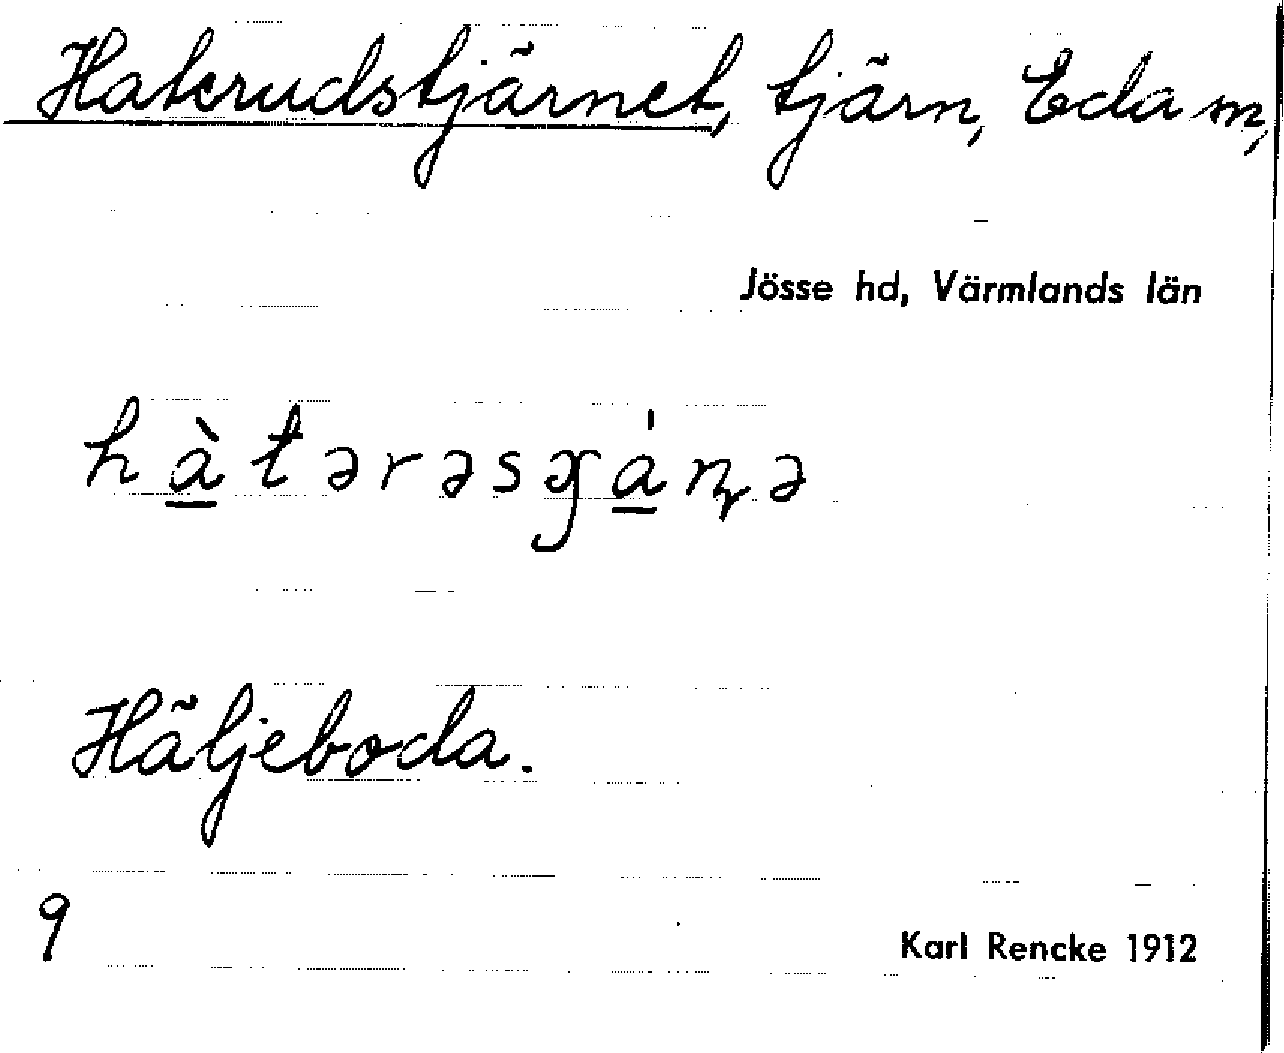 Haterudstjärnet, tjärn, Eda sn,
Jösse hd, Värmlands län
hàtərəsɟánə
Häljeboda.
9
Karl Rencke 1912